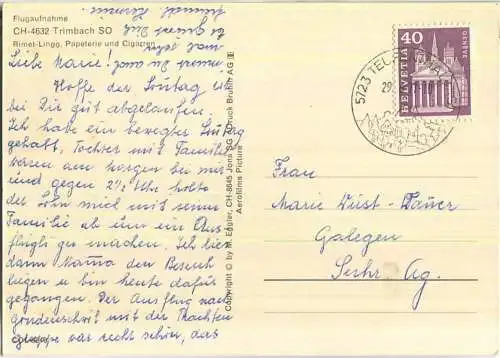 Flugaufnahme
CH-4632 Trimbach SO
Rimel-Lingg, Papeterie und Cigarren
Liebe Marie!
Hoffe der Sontag ist
bei Dir gut abgelaufen.
Ich habe ein bewegter Sontag
gehabt, Tochter mit Familie
waren am morgen bei mir
und gegen 2½ Uhr holte
der Sohn mich mit seiner
Familie ab um ein Aus-
flügli zu machen. Ich liess
dann Mama den Besuch
liegen u bin heute dafür
gegangen. Der Ausflug nach
mit der Trachten
gruppe war recht schön, das
Copyright © by M. Engler, CH-8645 Jona SG / Druck Bruhin AG
Aerofilms Picture
40
HELVETIA
GENÈVE
5723
Frau
Marie Wüst-
Galegen
Suhr Ag.